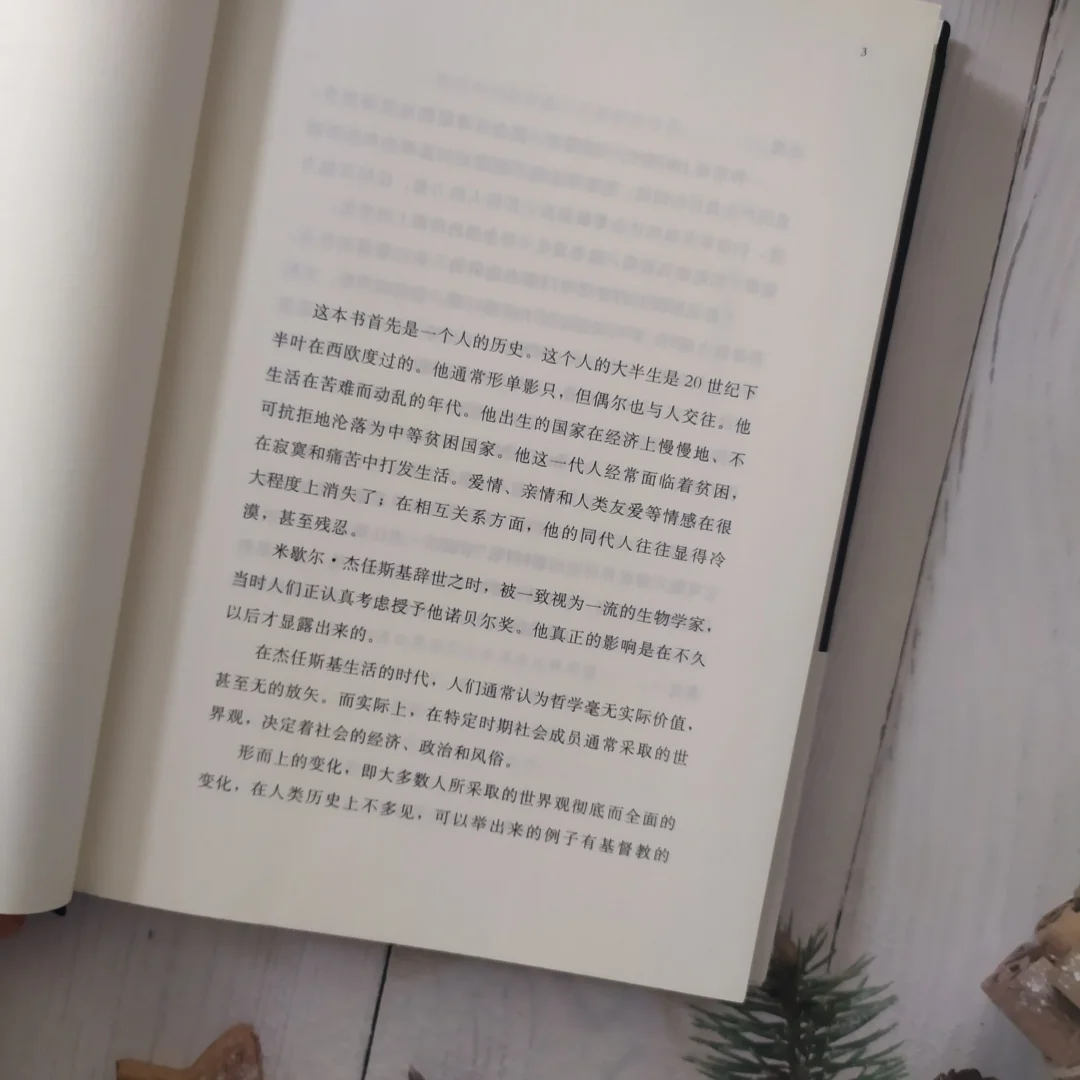 3
这本书首先是一个人的历史。这个人的大半生是20世纪下
半叶在西欧度过的。他通常形单影只，但偶尔也与人交往。他
生活在苦难而动乱的年代。他出生的国家在经济上慢慢地、不
可抗拒地沦落为中等贫困国家。他这一代人经常面临着贫困，
在寂寞和痛苦中打发生活。爱情、亲情和人类友爱等情感在很
大程度上消失了；在相互关系方面，他的同代人往往显得冷
漠，甚至残忍。
米歇尔·杰任斯基辞世之时，被一致视为一流的生物学家，
当时人们正认真考虑授予他诺贝尔奖。他真正的影响是在不久
以后才显露出来的。
在杰任斯基生活的时代，人们通常认为哲学毫无实际价值，
甚至无的放矢。而实际上，在特定时期社会成员通常采取的世
界观，决定着社会的经济、政治和风俗。
形而上的变化，即大多数人所采取的世界观彻底而全面的
变化，在人类历史上不多见，可以举出来的例子有基督教的